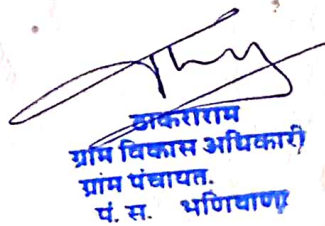 ठाकराराम
ग्राम विकास अधिकारी
ग्रांम पंचायत.
पं. स. भणियाणा